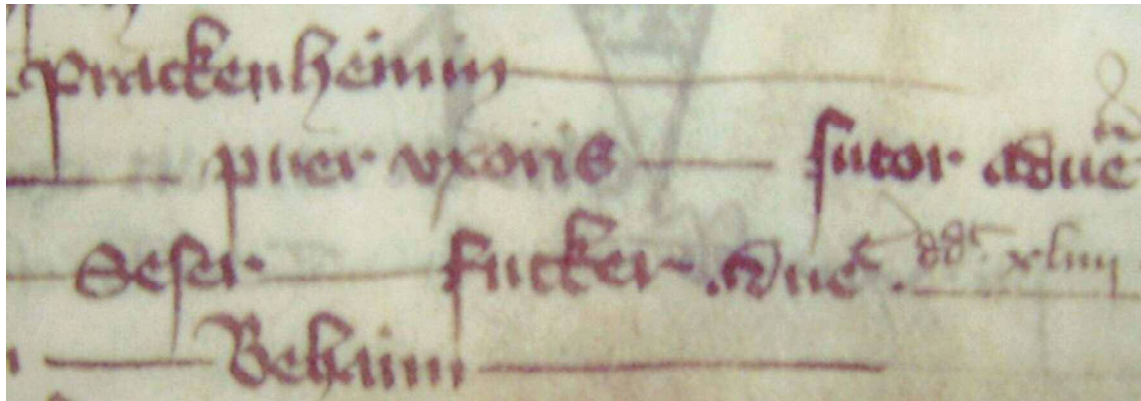 Prukenheimin
puer uxoris — sutor advē
Seser — fucker advē. ddt xliiii
Behaim